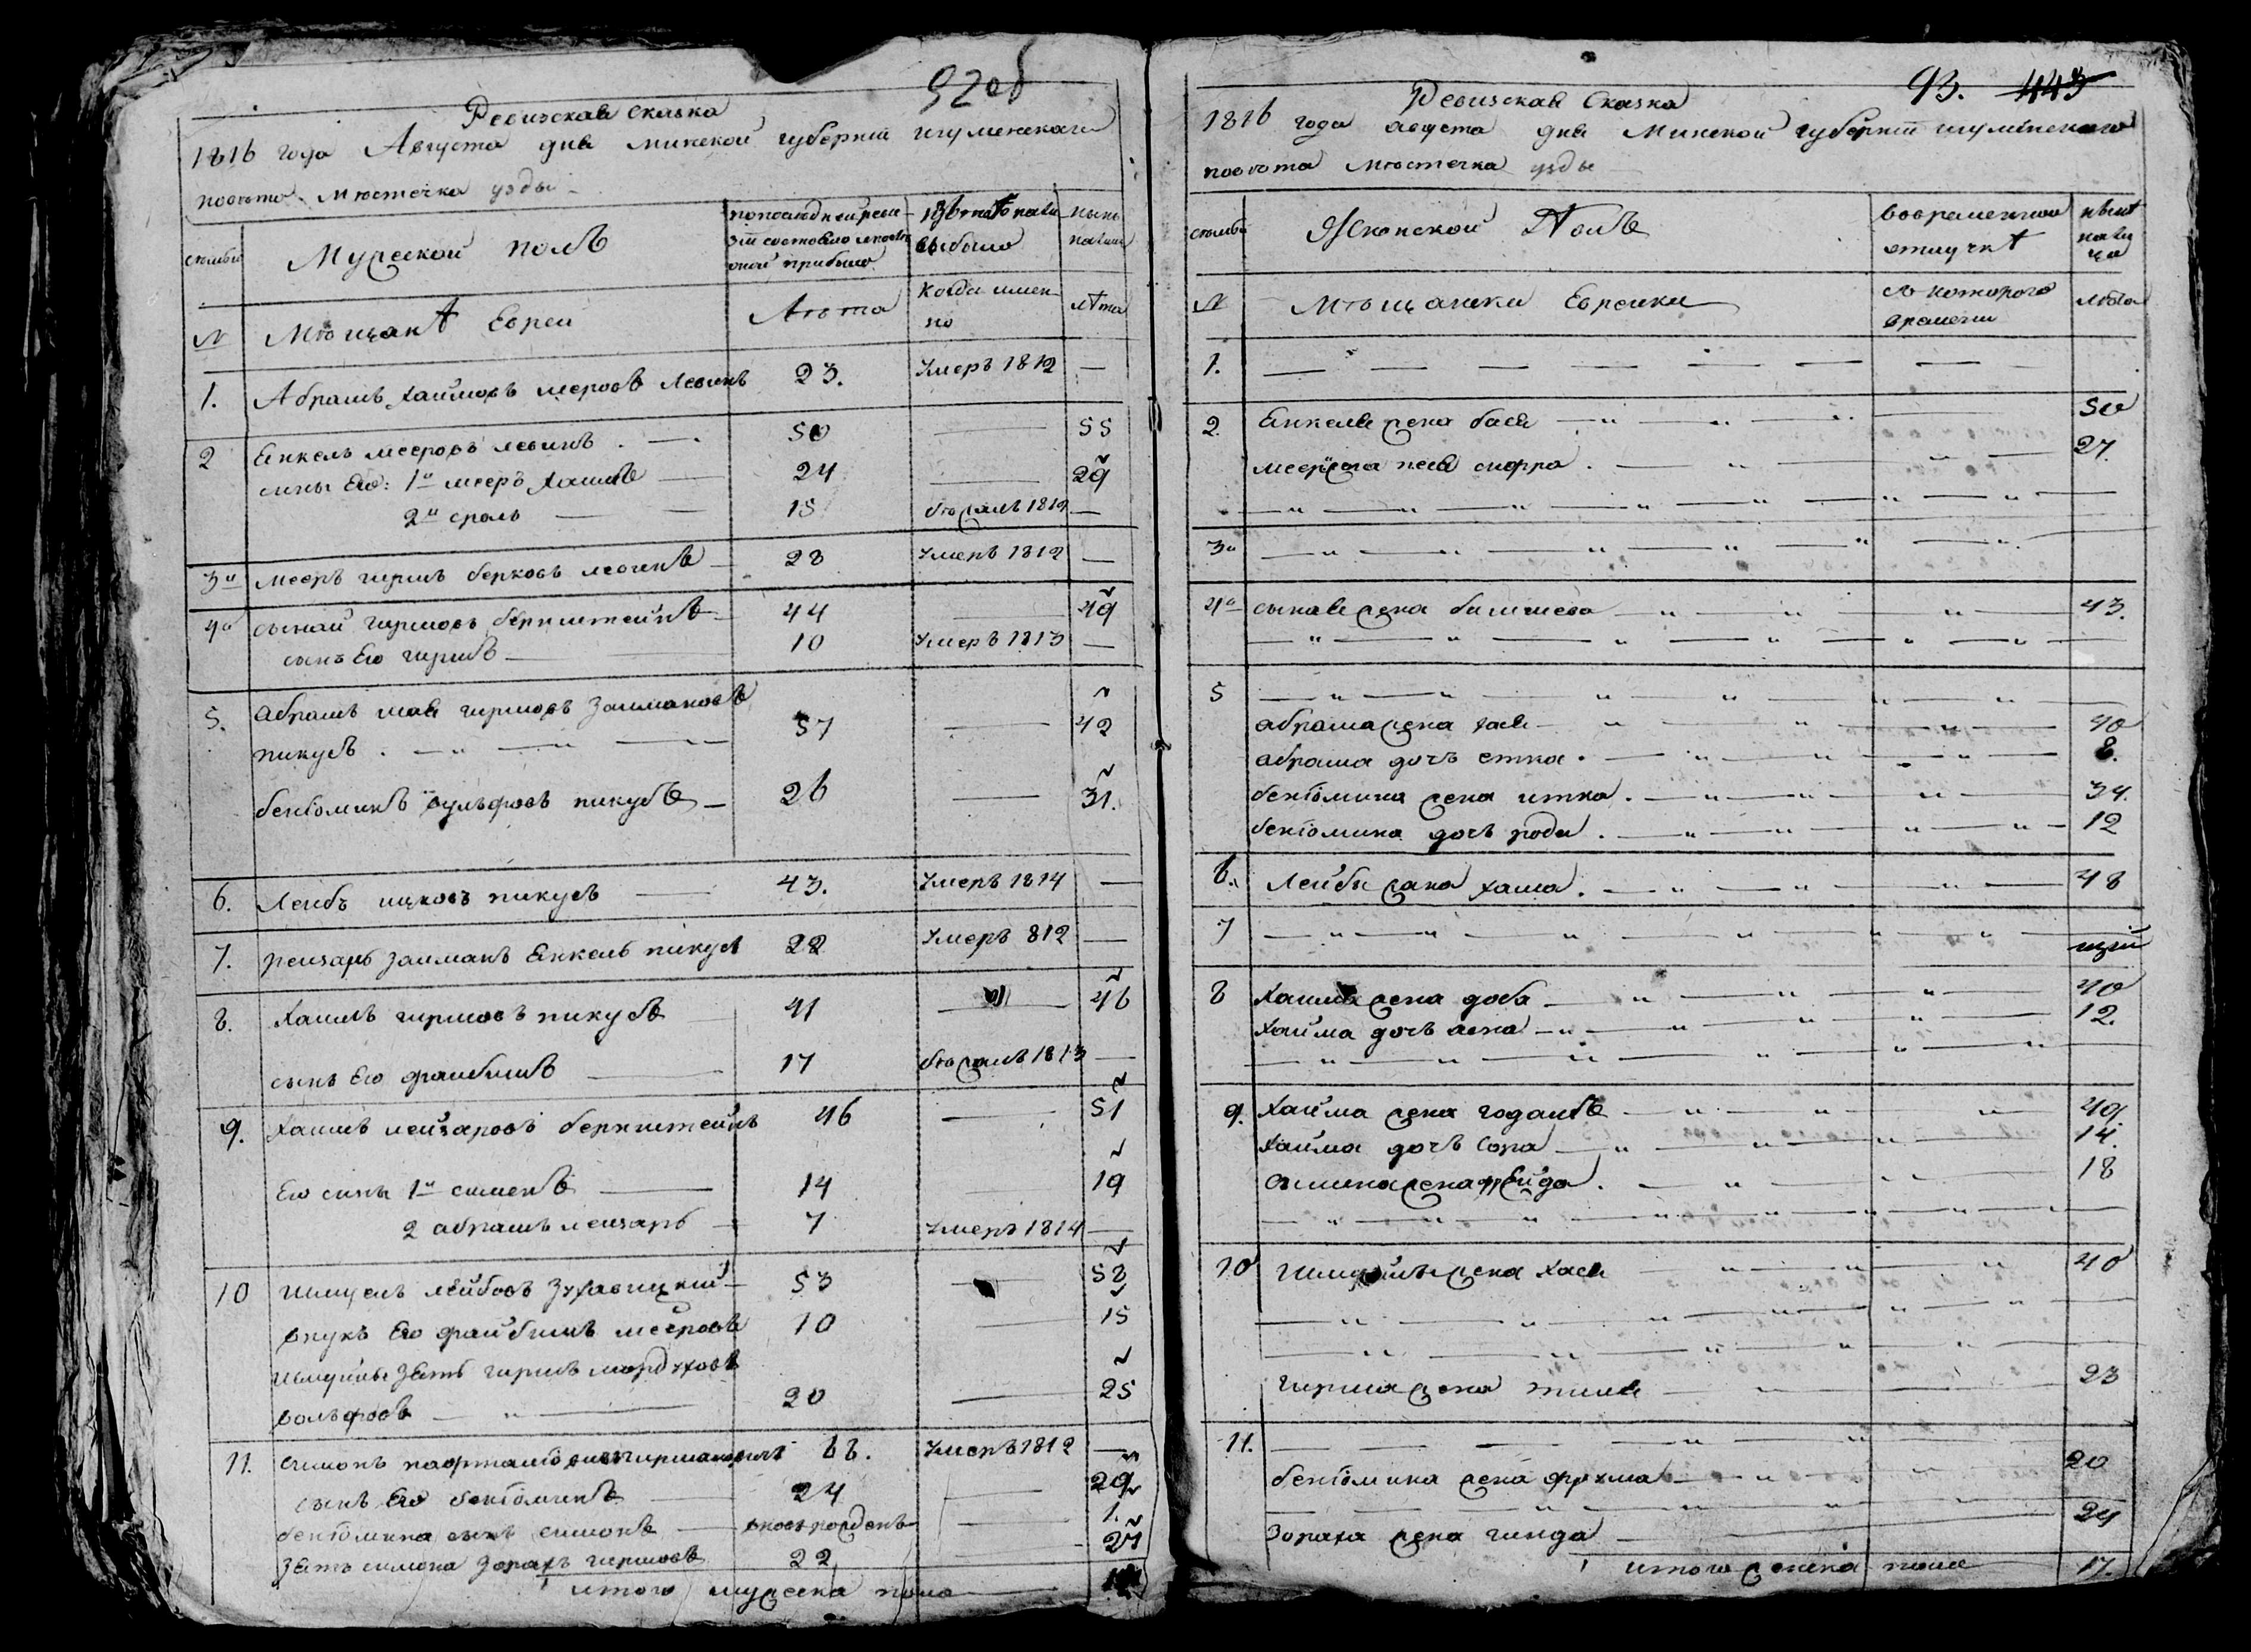 92об
Ревизская сказка
1816 года Августа дня минской губернiи игуменскаго
повѣта мѣстечка узды
семьи
Мужеской полъ
по последней ревизiи состояло и после оной прибыло
изъ того числа выбыло
ныне налицо
№
Мѣщанѣ Евреи
Лѣта
когда именно
лѣта
1. Абрамъ хаимовъ мееровъ левинъ 23. умеръ 1812 —
2 Енкель мееровъ левинъ 50 — 55
сыны Его: 1й мееръ хаимъ 24 — 29
2й сроль 15 бѣжалъ 1812 —
3й мееръ гиршъ берковъ левинъ 28 умеръ 1812 —
4й сынай гиршовъ бернштейнъ 44 — 49
сынъ Его гиршъ 10 умеръ 1813 —
5. абрамъ шая гиршовъ залмановъ
пикусъ 37 — 42
бенiоминъ вульфовъ пикусъ 26 — 31.
6. Лейбъ ицковъ пикусъ 43. умеръ 1814 —
7. лейзаръ залманъ Енкель пикусъ 22 умеръ 812 —
8. хаимъ гиршовъ пикусъ 41 — 46
сынъ Его файбишъ 17 бѣжалъ 1813 —
9. хаимъ лейзаровъ бернштейнъ 46 — 51
Его сыны 1й сименъ 14 19
2 абрамъ лейзаръ 7 умеръ 1814 —
10 шмуель лейбовъ Зухавицкий 53 — 58
внукъ Его файбишъ мееровъ 10 — 15
шмуйлы зять гиршъ мордуховъ
вольфовъ 20 — 25
11. симонъ 66. умеръ 1812 —
сынъ Его бенiоминъ 24 — 29
бенiомина сынъ симонъ вновь рожденъ — 1.
зять симона зорахъ гиршовъ 22 27
итого мужеска пола
93. 443
Ревизская Сказка
1816 года августа дня Минской губернiи игуменскаго
повѣта мѣстечка узды
семьи
Женской Полъ
во временной отлучкѣ
нынѣ налицо
№
Мѣщанки Еврейки
съ которого времени
лѣта
1.
2. Енкеля жена бася 50
меера жена песя сифра 27.
3й
4й сыная жена башшева 43.
5
абрама жена хая 40
абрама дочъ етка 8.
бенiомина жена итка 34.
бенiомина дочъ рода 12
6. Лейбы жена хана 48
7
8 хаима жена доба 40
хаима дочъ лена 12.
9. хаима жена годасъ 49.
хаима дочъ сора 14.
симина жена фрейда 18
10 Шмуйлы жена хася 40
гирша жена 23
11.
бенiомина жена фрума 20
зораха жена гинда 24
итого женска пола 17.